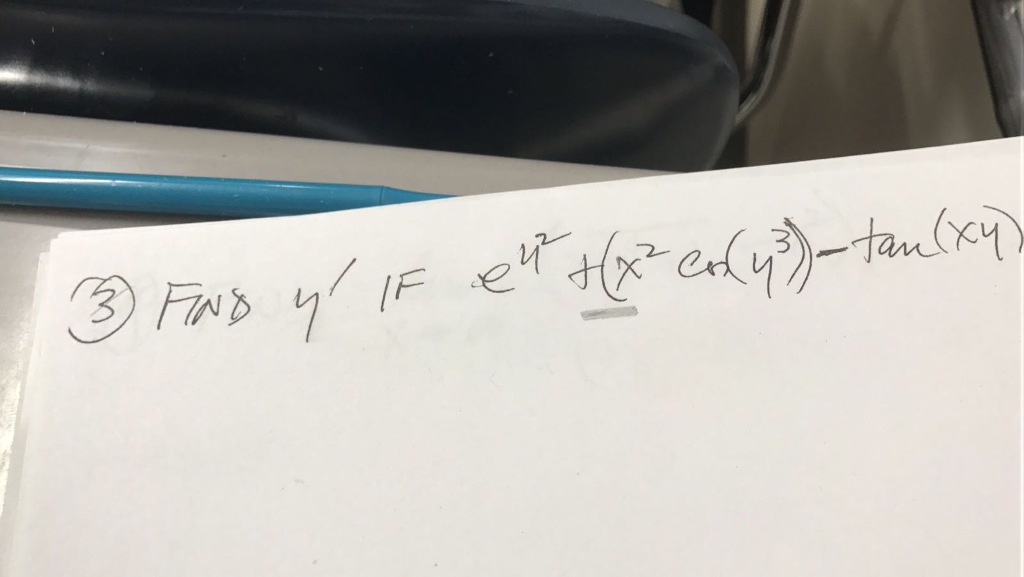 ③ FIND y' IF e^y² + (x² cos(y³)) - tan(xy)